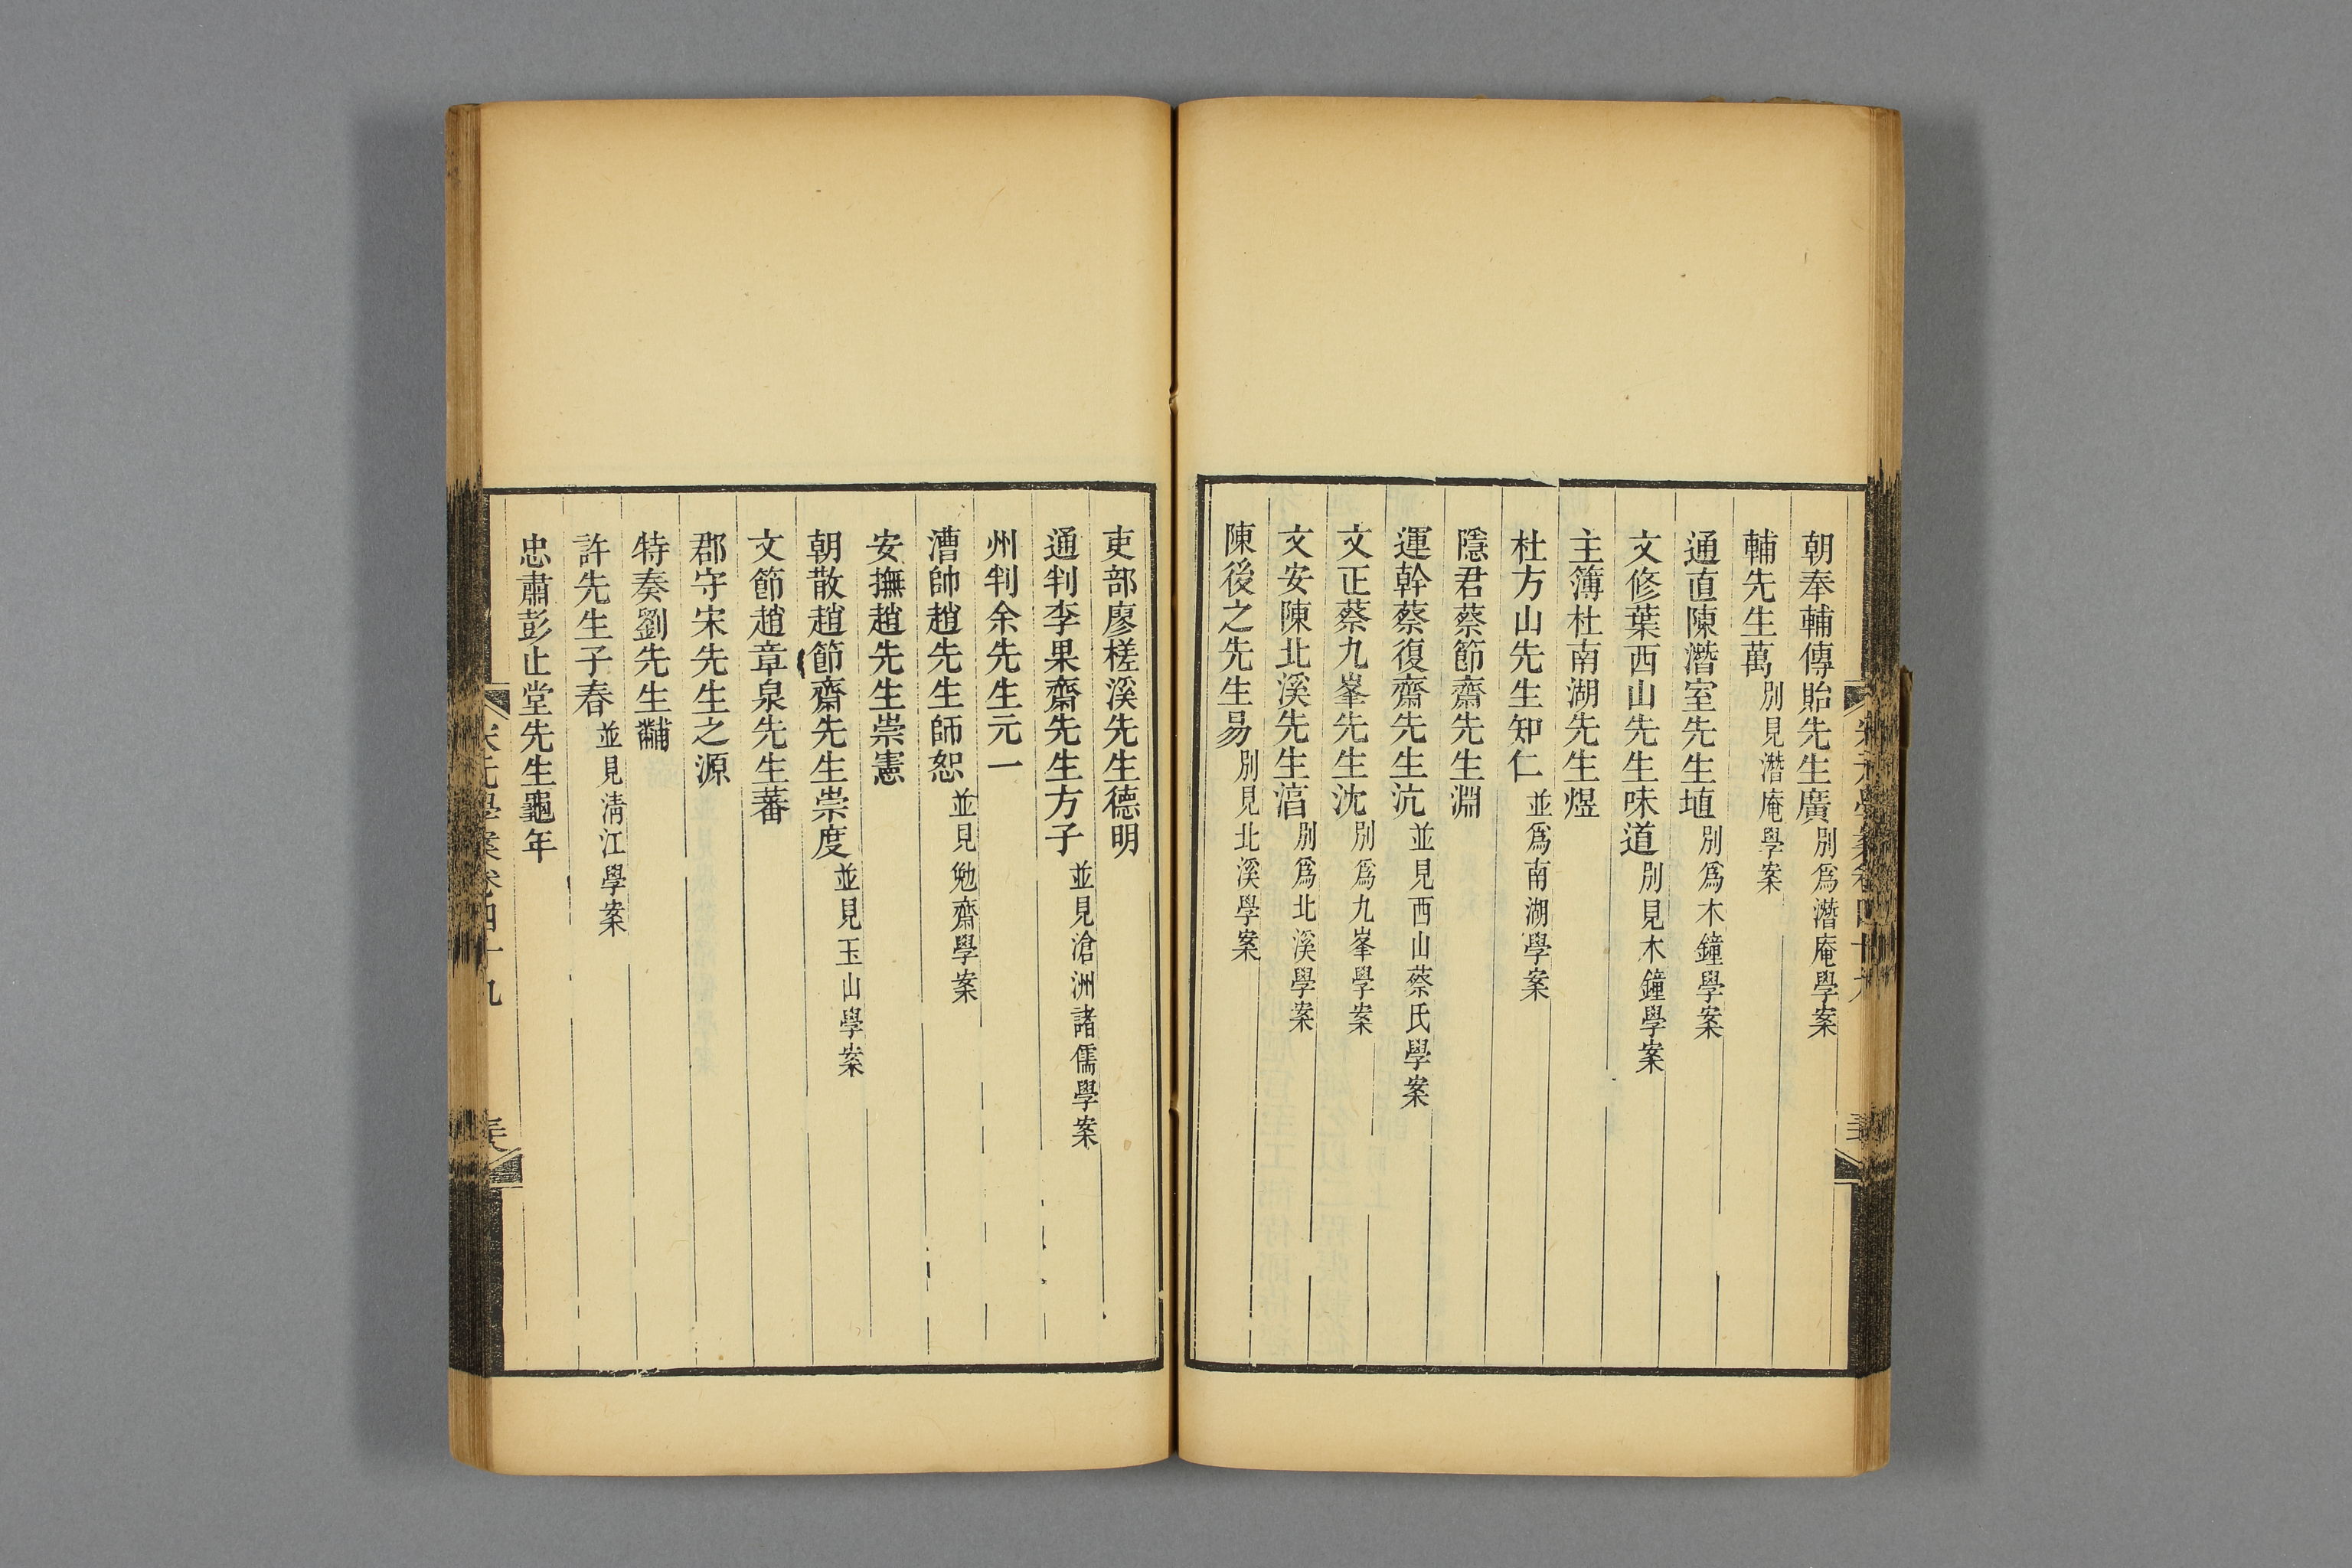 朝奉輔傳貽先生廣別爲潛庵學案
輔先生萬別見潛庵學案
通直陳潛室先生埴別爲木鐘學案
文修葉西山先生味道別見木鐘學案
主簿杜南湖先生煜
杜方山先生知仁並爲南湖學案
隱君蔡節齋先生淵
運幹蔡復齋先生沆並見西山蔡氏學案
文正蔡九峯先生沈別爲九峯學案
文安陳北溪先生淳別爲北溪學案
陳後之先生易別見北溪學案
吏部廖槎溪先生德明
通判李果齋先生方子並見滄洲諸儒學案
州判余先生元一
漕帥趙先生師恕並見勉齋學案
安撫趙先生崇憲
朝散趙節齋先生崇度並見玉山學案
文節趙章泉先生蕃
郡守宋先生之源
特奏劉先生黼
許先生子春並見淸江學案
忠肅彭止堂先生龜年
宋元學案卷四十九